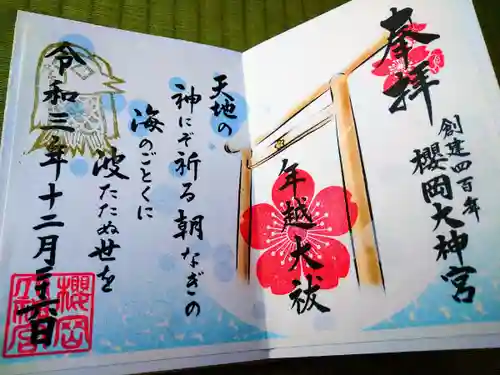 奉拝
創建四百年
櫻岡大神宮
年越大祓
天地の
神にぞ祈る朝なぎの
海のごとくに
波たたぬ世を
令和三年十二月二十六日
櫻岡